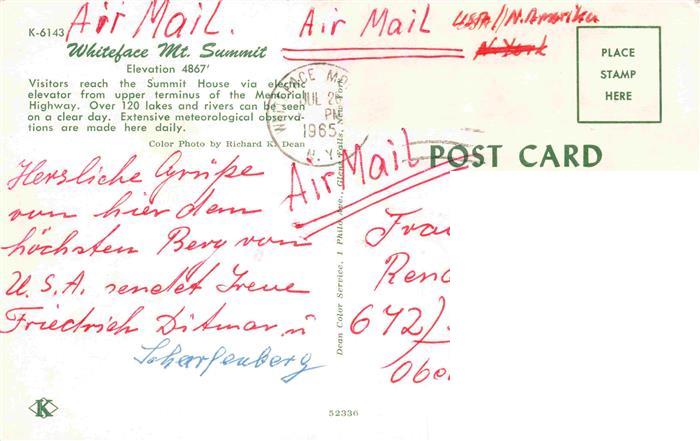 Air Mail. Air Mail USA//N.Amerika
K-6143
N-York
Whiteface Mt. Summit
Elevation 4867'
Visitors reach the Summit House via electric
elevator from upper terminus of the Memorial
Highway. Over 120 lakes and rivers can be seen
on a clear day. Extensive meteorological observa-
tions are made here daily.
Color Photo by Richard K. Dean
PLACE
STAMP
HERE
JUL 2
PM
1965
N.Y.
POST CARD
Air Mail
Hersliche Grüße
von hier dem
höchsten Berg von
U.S.A. sendet Irene
Friedrich Ditmar u
Scharfenberg
Dean Color Service, 1 Phil Ave., Glens Falls, New York
Frau
Ren
672/
Obe
K
52336